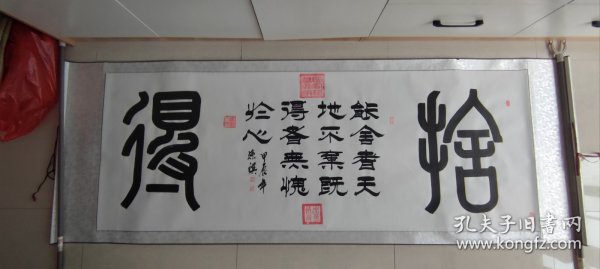 捨
能舍者天
地不棄既
得者無愧
於心
甲辰年
得
孔夫子旧书网
www.kongfz.com